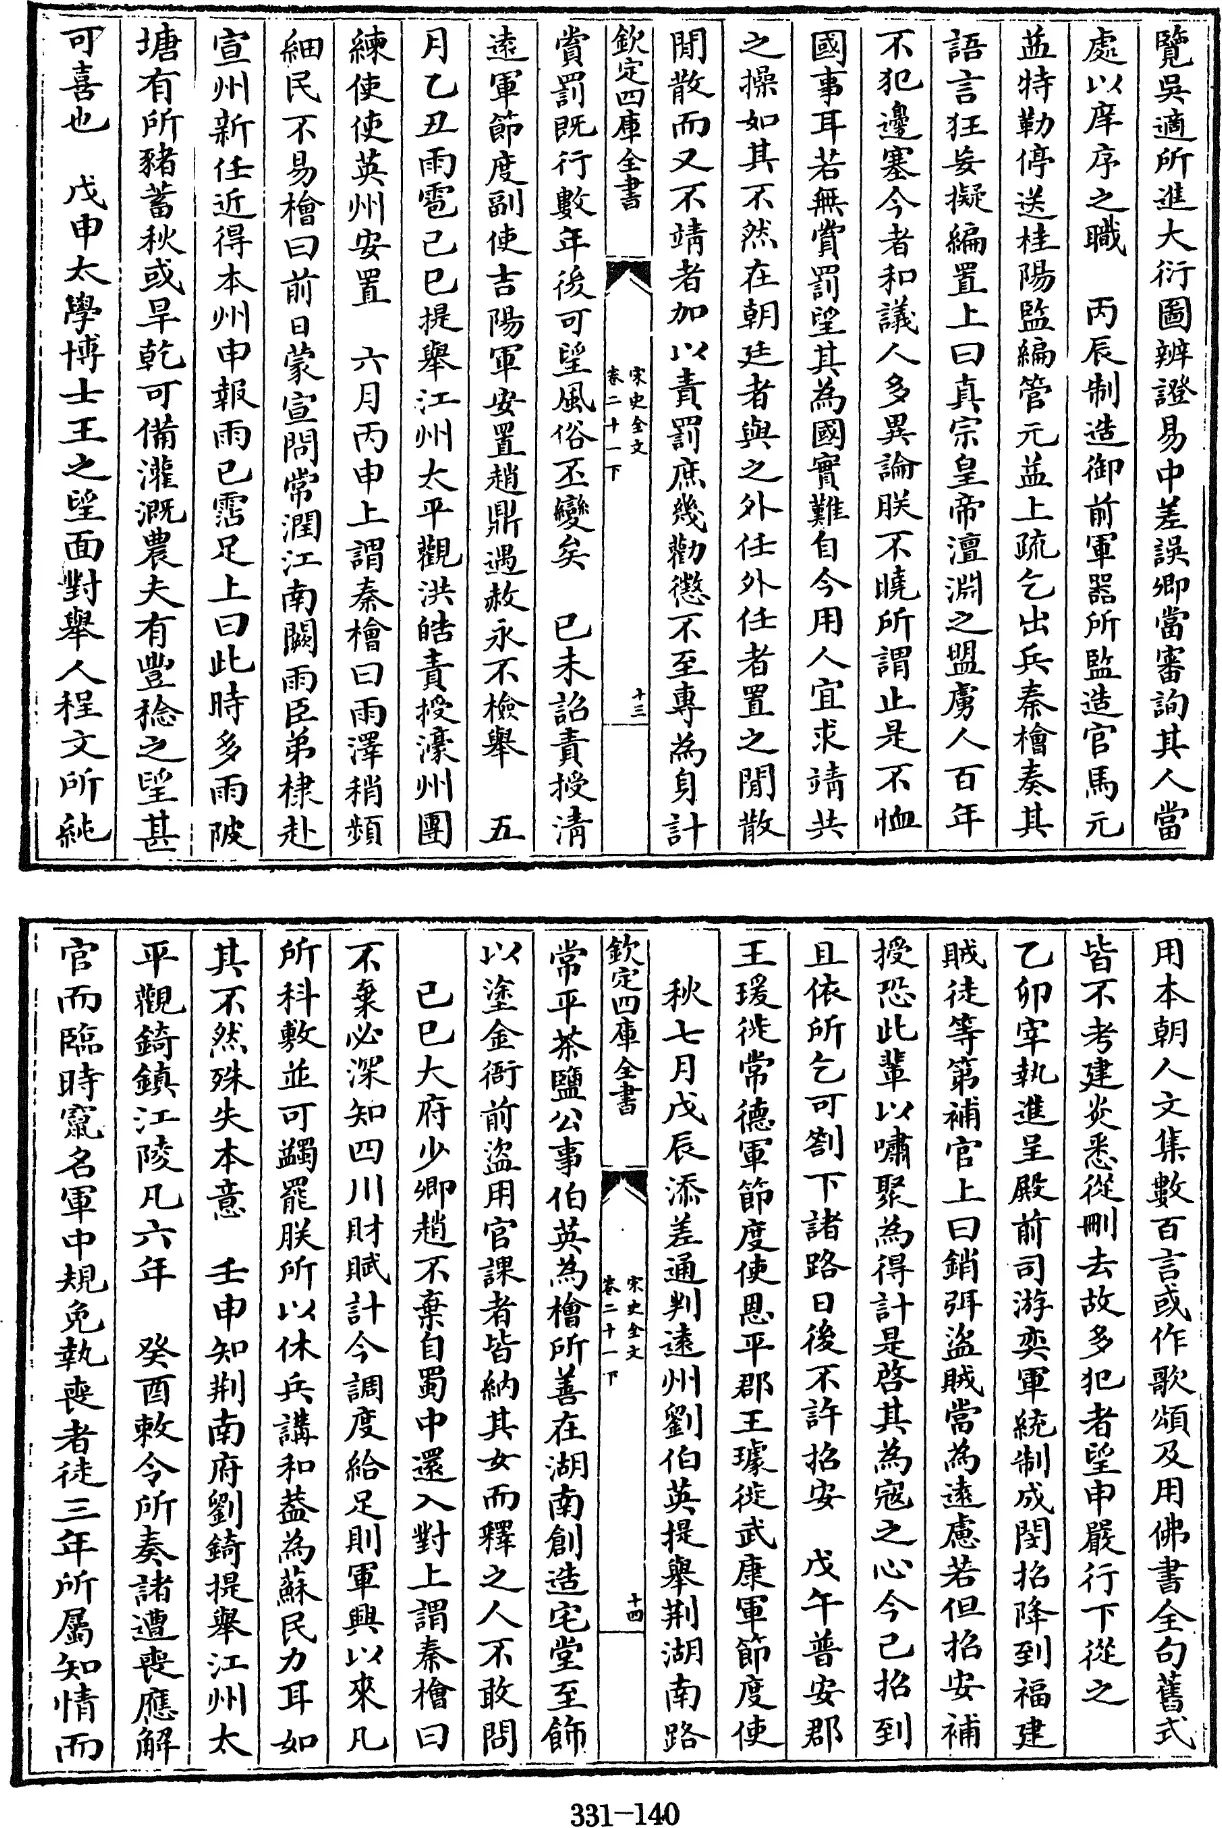 覽吳適所進大衍圖辨證易中差誤卿當審詢其人當
處以庠序之職　丙辰制造御前軍器所監造官馬元
益特勒停送桂陽監編管元益上疏乞出兵秦檜奏其
語言狂妄擬編置上曰真宗皇帝澶淵之盟虜人百年
不犯邊塞今者和議人多異論朕不曉所謂止是不恤
國事耳若無賞罰望其為國實難自今用人宜求靖共
之操如其不然在朝廷者與之外任外任者置之閒散
閒散而又不靖者加以責罰庶幾勸懲不至專為身計
欽定四庫全書
宋史全文
卷二十一下
十三
賞罰既行數年後可望風俗丕變矣　已未詔責授清
遠軍節度副使吉陽軍安置趙鼎遇赦永不檢舉　五
月乙丑雨雹己巳提舉江州太平觀洪皓責授濠州團
練使使英州安置　六月丙申上謂秦檜曰雨澤稍頻
細民不易檜曰前日蒙宣問常潤江南闕雨臣弟棣赴
宣州新任近得本州申報雨已霑足上曰此時多雨陂
塘有所豬蓄秋或旱乾可備灌溉農夫有豐稔之望甚
可喜也　戊申太學博士王之望面對舉人程文所純
用本朝人文集數百言或作歌頌及用佛書全句舊式
皆不考建炎悉從刪去故多犯者望申嚴行下從之
乙卯宰執進呈殿前司游奕軍統制成閔招降到福建
賊徒等第補官上曰銷弭盜賊當為遠慮若但招安補
授恐此輩以嘯聚為得計是啓其為寇之心今已招到
且依所乞可劄下諸路日後不許招安　戊午普安郡
王瑗徙常德軍節度使恩平郡王璩徙武康軍節度使
秋七月戊辰添差通判遠州劉伯英提舉荆湖南路
欽定四庫全書
宋史全文
卷二十一下
十四
常平茶鹽公事伯英為檜所善在湖南創造宅堂至飾
以塗金衙前盜用官課者皆納其女而釋之人不敢問
己巳大府少卿趙不棄自蜀中還入對上謂秦檜曰
不棄必深知四川財賦計今調度給足則軍興以來凡
所科敷並可蠲罷朕所以休兵講和葢為蘇民力耳如
其不然殊失本意　壬申知荆南府劉錡提舉江州太
平觀錡鎮江陵凡六年　癸酉敕令所奏諸遭喪應解
官而臨時竄名軍中規免執喪者徒三年所屬知情而
331-140